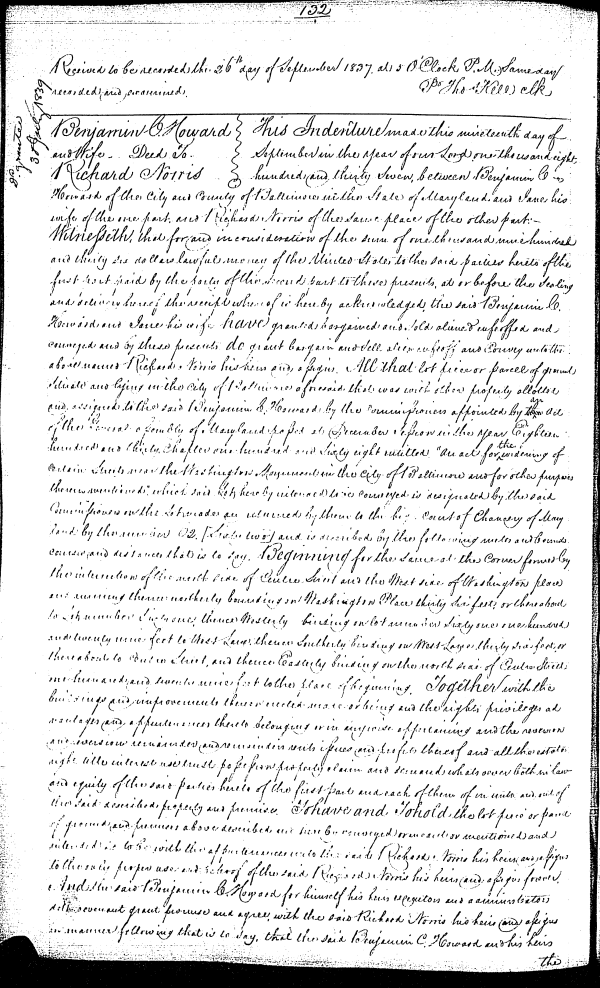 132
Received to be recorded the 26th day of September 1837. at 5 O'Clock P.M. Same day
recorded and examined. Pr Tho Kell clk
Dd grantee
30 July 1839
Benjamin C. Howard
and Wife Deed To
Richard Norris
This Indenture made this nineteenth day of
September in the year of our Lord one thousand eight
hundred and thirty Seven, between Benjamin C
Howard of the City and County of Baltimore in the State of Maryland and Jane his
wife of the one part, and Richard Norris of the same place of the other part:
Witnesseth, that for and in consideration of the sum of one thousand nine hundred
and thirty six dollars lawful money of the United States to the said parties hereto of the
first part paid by the party of the second part to these presents, at or before the Sealing
and delivery hereof the receipt whereof is hereby acknowledged the said Benjamin C.
Howard and Jane his wife have granted bargained and sold aliened enfeoffed and
conveyed and by these presents do grant bargain and sell alien enfeoff and Convey unto the
above named Richard Norris his heirs and assigns. All that lot piece or parcel of ground
situate and lying in the City of Baltimore aforesaid that was with other property allotted
and assigned to the said Benjamin C. Howard by the Commissioners appointed by an act
of the General assembly of Maryland passed at December Session in the year Eighteen
hundred and thirty, Chapter one hundred and Sixty eight entitled "An act for the widening of
Certain Streets near the Washington Monument in the City of Baltimore and for other purposes
therein mentioned" which said Lot hereby intended to be conveyed is designated by the said
Commissioners on the Plot made and returned by them to the high Court of Chancery of Mary
land by the number 62, (Sixty two) and is described by the following metes and bounds
courses and distances that is to say, Beginning for the same at the Corner formed by
the intersection of the north side of Centre Street and the West side of Washington place
and running thence northerly bounding on Washington Place thirty six feet, or thereabout
to Lot number Sixty one, thence Westerly binding on lot number Sixty one one hundred
and twenty nine feet to West Lane, thence Southerly binding on West Lane thirty six feet, or
thereabout to Centre Street, and thence Easterly binding on the north side of Centre Street
one hundred and twenty nine feet to the place of beginning. Together with the
buildings and improvements thereon erected made or being and the rights, privileges ad
vantages and appurtenances thereto belonging or in anywise appertaining and the reversion
and reversions remainder and remainders rents issues and profits thereof and all the estate
right title interest use trust possession property claim and demand whatsoever both in law
and equity of the said parties hereto of the first part and each of them of in unto and out of
the said described property and premises. To have and To hold the lot piece or parcel
of ground and premises above described and hereby conveyed or meant or mentioned and
intended so to be with the appurtenances unto the said Richard Norris his heirs and assigns
to the only proper use and behoof of the said Richard Norris his heirs and assigns forever
And the said Benjamin C. Howard for himself his heirs executors and administrators
doth covenant grant promise and agree, with the said Richard Norris his heirs and assigns
in manner following that is to say, that the said Benjamin C. Howard and his heirs
the